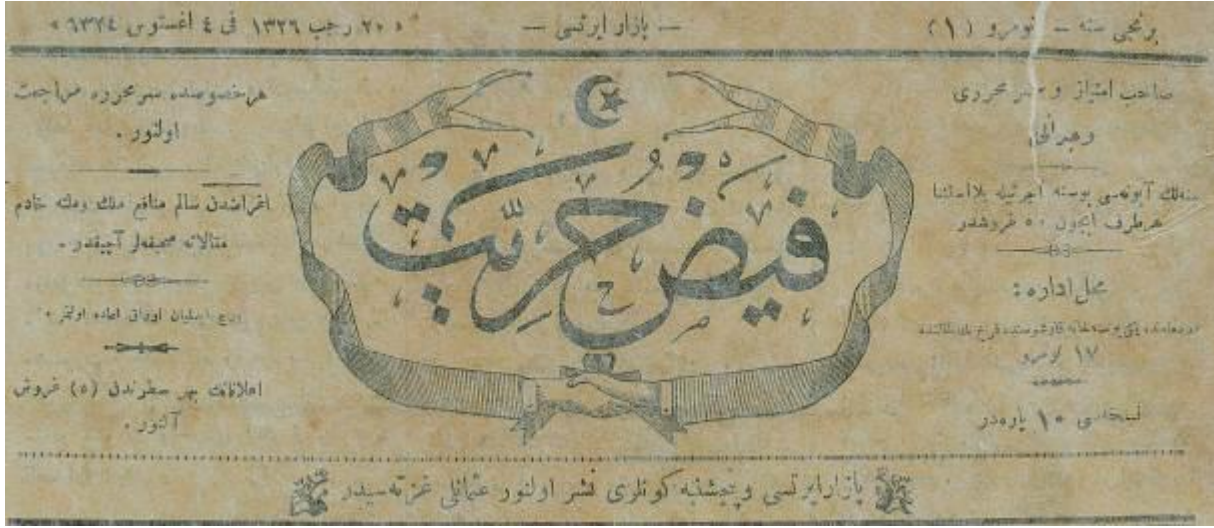 برنجی سنه — نومرو (١)
— بازار ایرتسی —
« ٢٠ رجب ١٣٢٦ فی ٤ اغستوس ١٣٢٤ »
صاحب امتیاز و سر محرری
وجدانی
سنه‌لك آبونه‌سی پوسته اجرتیله بلااستثنا
هر طرف ایچون ٥٠ غروشدر
محل اداره :
١٧ نومرو
نسخه‌سی ١٠ پاره‌در
فیض حریت
هر خصوصده سر محرره مراجعت
اولنور .
اغراضدن سالم منافع ملك و ملته خادم
مقالاته صحیفه‌لر آچیقدر .
درج ایدلمیان اوراق اعاده اولنمز .
اعلاناتك بهر سطرندن (٥) غروش
آلنور .
بازار ایرتسی و پنجشنبه کونلری نشر اولنور عثمانلی غزته سیدر